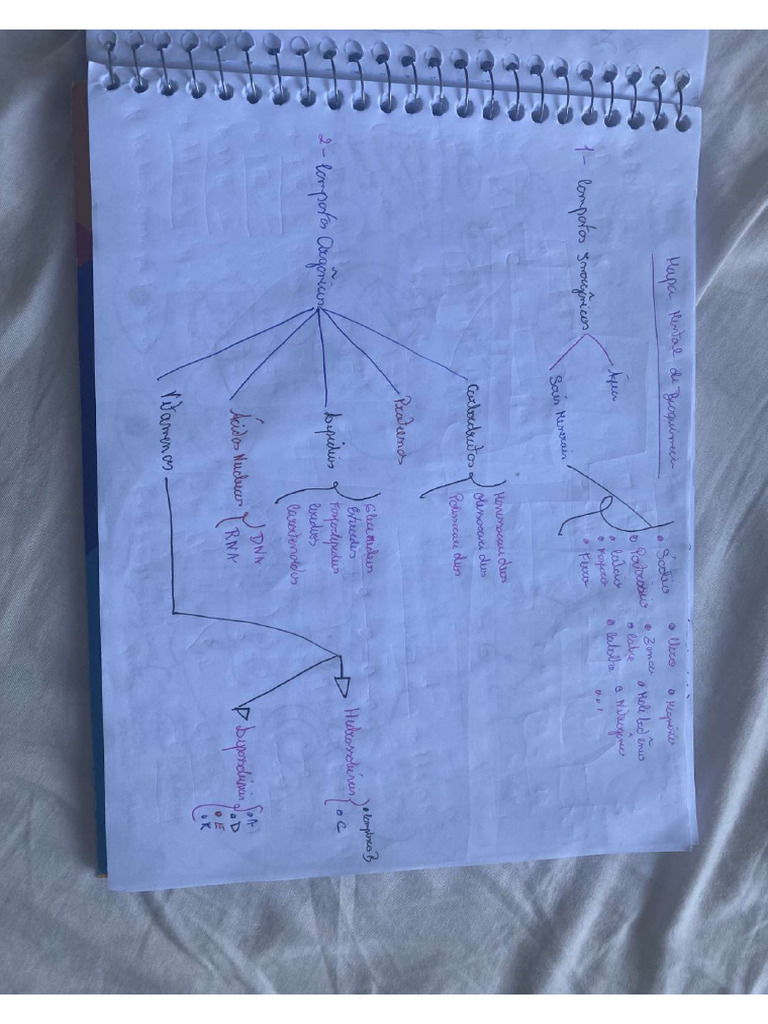 Mapa Mental de Bioquimica
1- Compostos Inorgânicos
Água
Sais Minerais
• Sódio
• Potássio
• Cálcio
• Fósforo
• Ferro
• Cloro
• Zinco
• Cobre
• Cobalto
• Magnésio
• Molibdênio
• Nitrogênio
2- Compostos Orgânicos
Carboidratos
Monossacarídeos
Oligossacarídeos
Polissacarídeos
Proteínas
Lipídios
Glicerídeos
Esteroides
Fosfolipídios
Cerídeos
Carotenoides
Ácidos Nucleicos
DNA
RNA
Vitaminas
Hidrossolúveis
• Complexo B
• C
Lipossolúveis
• A
• D
• E
• K